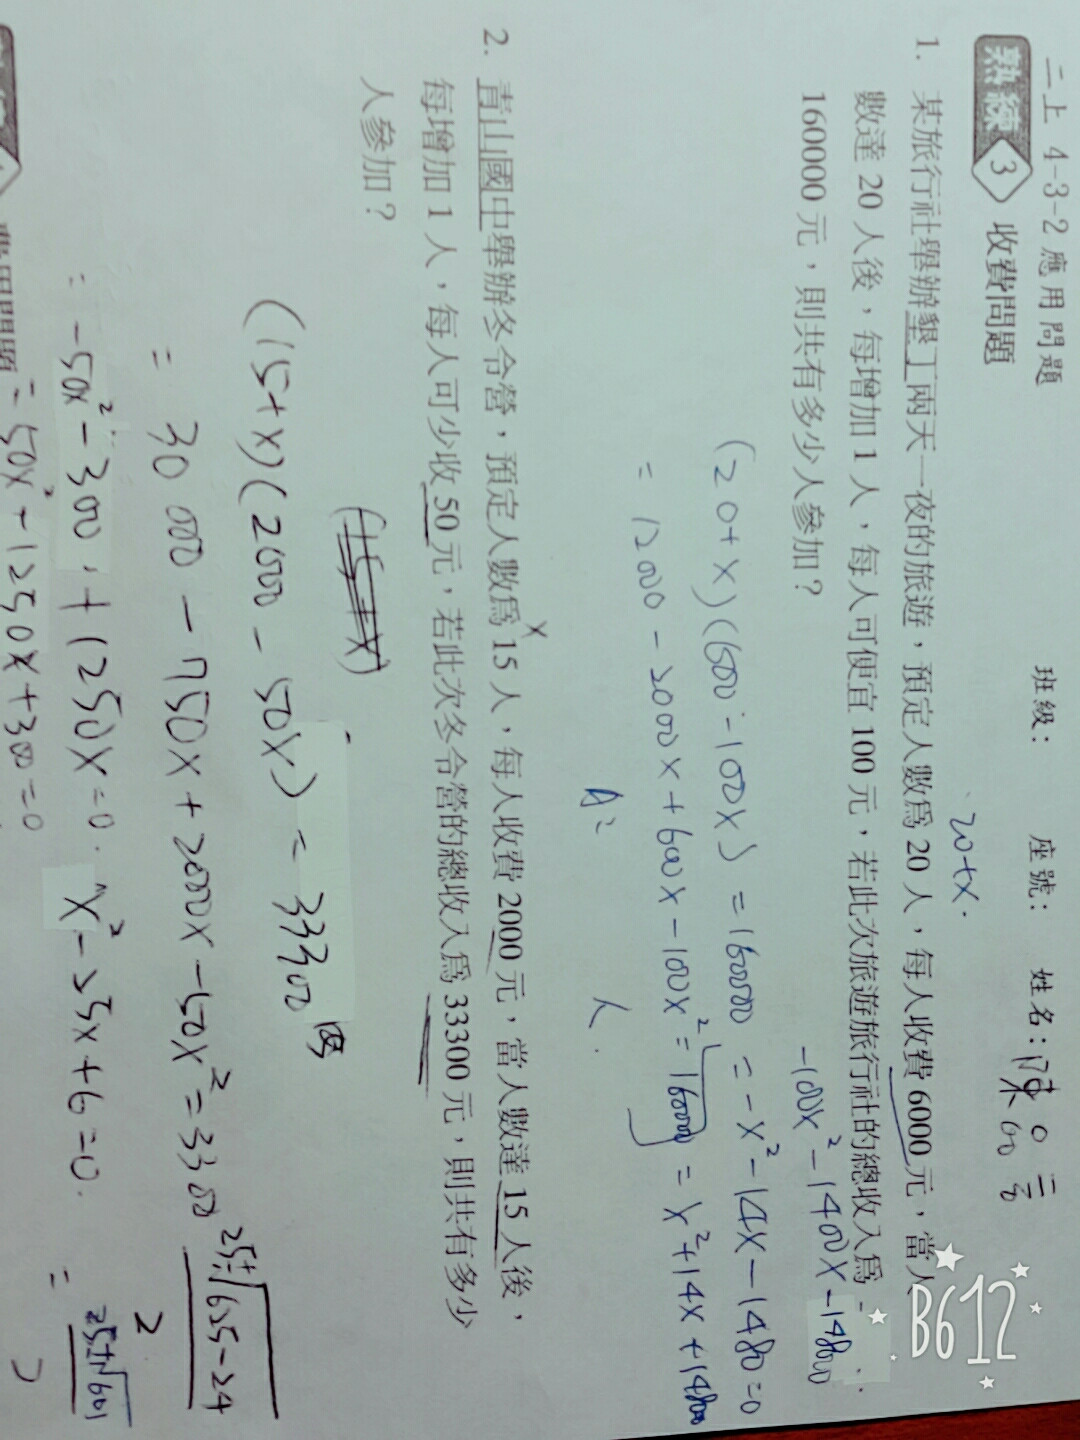 二上 4-3-2 應用問題 班級： 座號： 姓名：陳
熟練 3 收費問題
20+x.
1. 某旅行社舉辦墾丁兩天一夜的旅遊，預定人數為 20 人，每人收費 6000 元，當人
數達 20 人後，每增加 1 人，每人可便宜 100 元，若此次旅遊旅行社的總收入為
160000 元，則共有多少人參加？
-100x²-1400x-148000
(20+x)(600-100x)=160000 =-x²-14x-1480=0
=12000-2000x+600x-100x²=160000 =x²+14x+14800
A: 人.
2. 青山國中舉辦冬令營，預定人數為 15 人，每人收費 2000 元，當人數達 15 人後，
x
每增加 1 人，每人可少收 50 元，若此次冬令營的總收入為 33300 元，則共有多少
人參加？
(15+x)
(15+x)(2000-50x)=33300
=30000-750x+2000x-50x²=3300
25±√625-24
2
=-50x²-300+1250x=0. x²-25x+6=0.
=25±√601
=50x²-1250x+300=0
B612